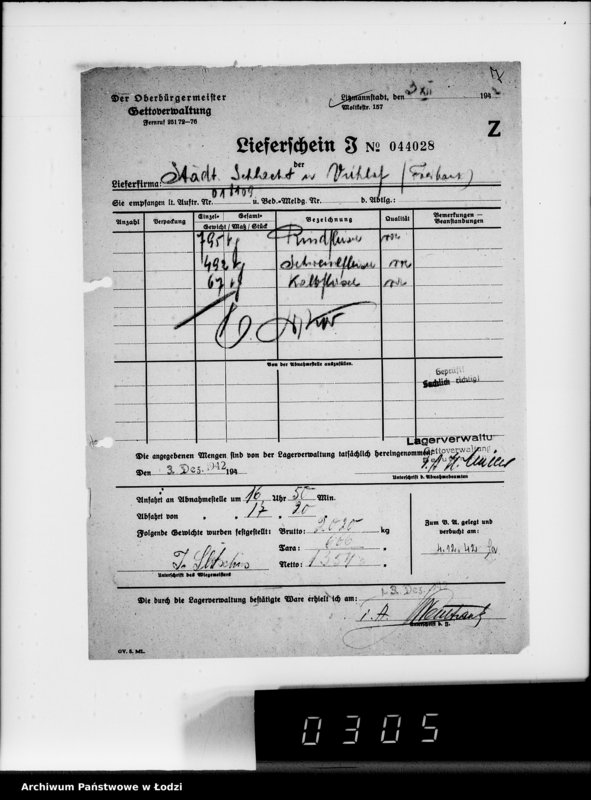 Der Oberbürgermeister
Gettoverwaltung
Fernruf 251 72—76
Litzmannstadt, den 3. XII 194
Moltkestr. 157
Z
Lieferschein I № 044028
der
Lieferfirma: Städt. Schlacht u Viehhof
Sie empfangen lt. Auftr. Nr. u. Bed.-Meldg. Nr. d. Abtlg.:
Anzahl Verpackung Einzel- Gesamt- Bezeichnung Qualität Bemerkungen — Beanstandungen
Gewicht / Maß / Stück
795 kg Rindfleisch
492 kg Schweinefleisch
67 kg Kalbfleisch
Von der Abnahmestelle auszufüllen.
Geprüft!
Sachlich richtig!
Lagerverwaltu
Gettoverwaltung
Die angegebenen Mengen sind von der Lagerverwaltung tatsächlich hereingenommen
Den 3. Dez. 1942 194
Unterschrift d. Abnahmebeamten
Anfahrt an Abnahmestelle um 16 Uhr 50 Min.
Abfahrt von " " 17 " 20 "
Folgende Gewichte wurden festgestellt: Brutto: 2020 kg
Tara: 666 "
Netto: 1354 "
Unterschrift des Wiegemeisters
Zum B. A. gelegt und
verbucht am:
4.12.42
Die durch die Lagerverwaltung bestätigte Ware erhielt ich am: 3. Dez. 1942
i. A.
GV. 5. ML.
0305
Archiwum Państwowe w Łodzi